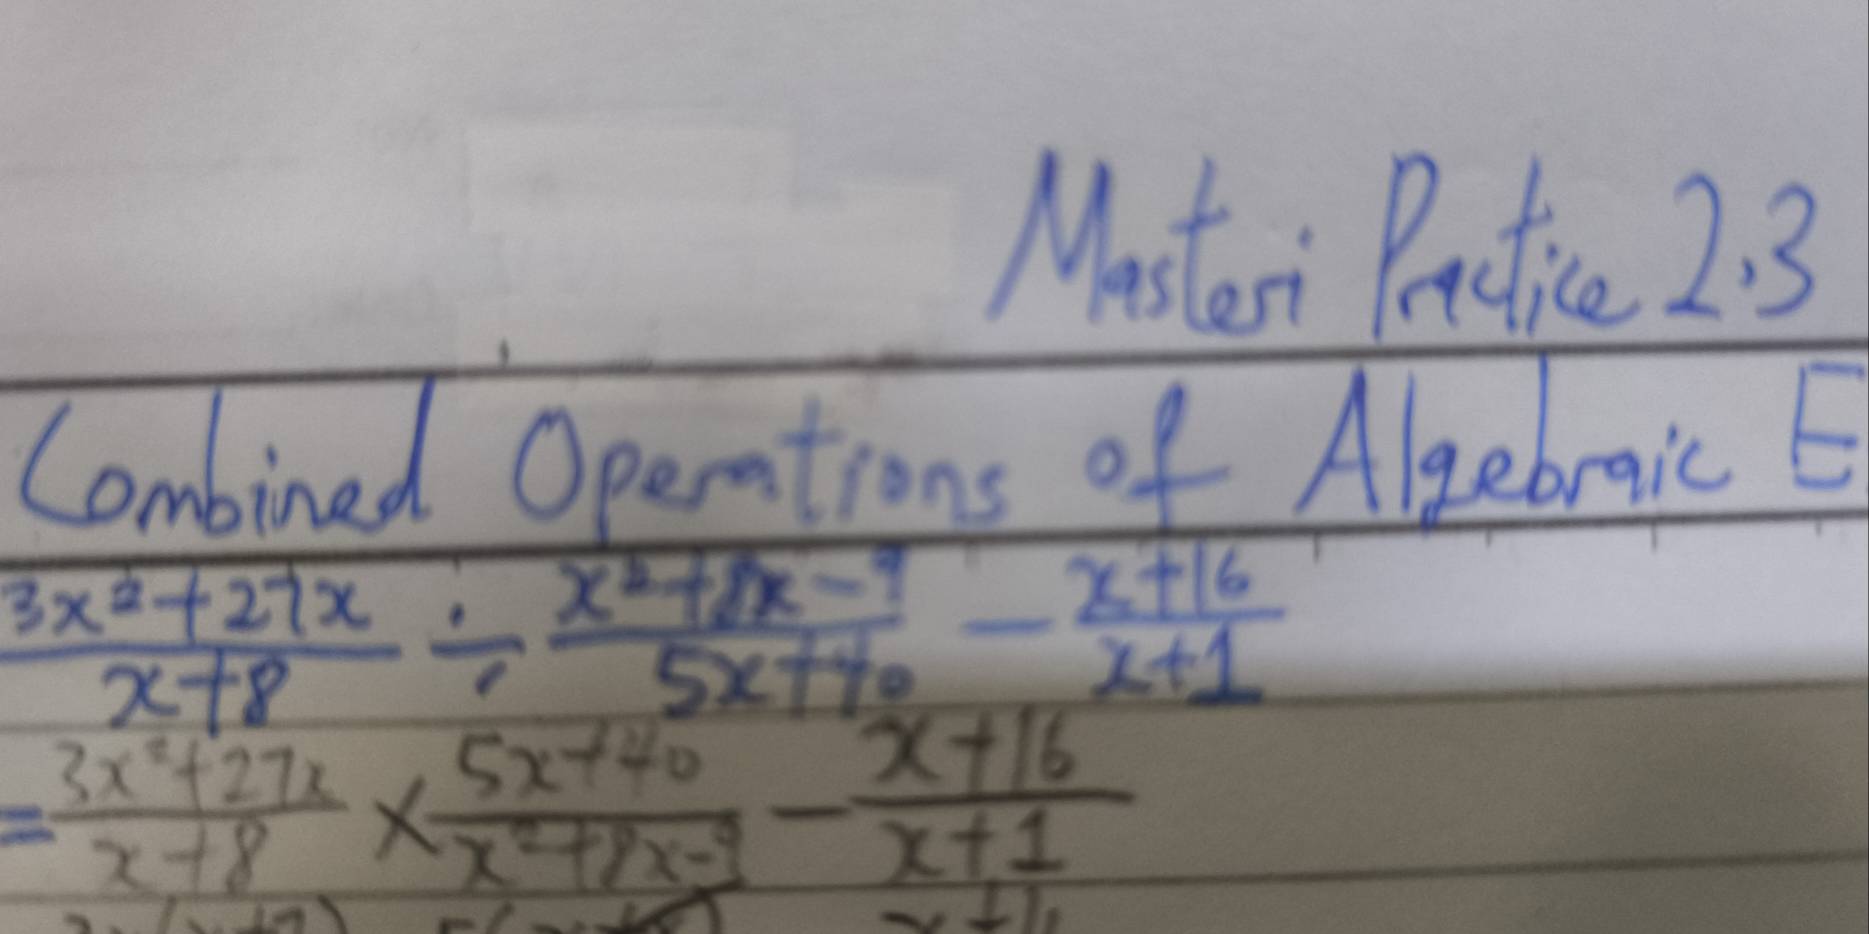 Masteri Practice 2.3
Combined Operations of Algebraic E
3x²+27x/x+8 ÷ x²+8x-9/5x+40 - x+16/x+1
= 3x²+27x/x+8 × 5x+40/x²+8x-9 - x+16/x+1